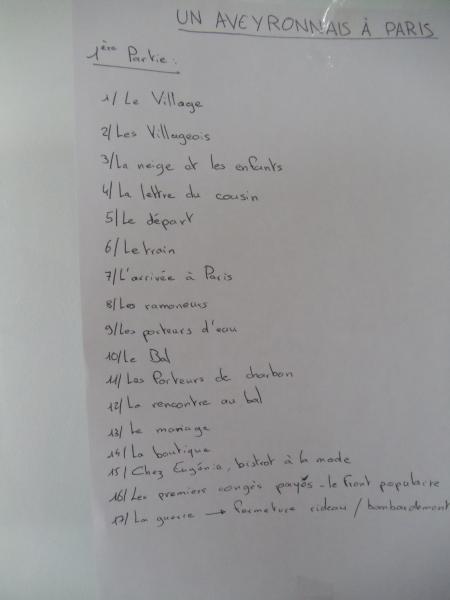 UN AVEYRONNAIS À PARIS
1ère Partie :
1/ Le Village
2/ Les Villageois
3/ La neige et les enfants
4/ La lettre du cousin
5/ Le départ
6/ Le train
7/ L'arrivée à Paris
8/ Les ramoneurs
9/ Les porteurs d'eau
10/ Le Bal
11/ Les Porteurs de charbon
12/ La rencontre au bal
13/ Le mariage
14/ La boutique
15/ Chez Eugénia, bistrot à la mode
16/ Les premiers congès payés - le Front populaire
17/ La guerre → fermeture rideau / bombardement